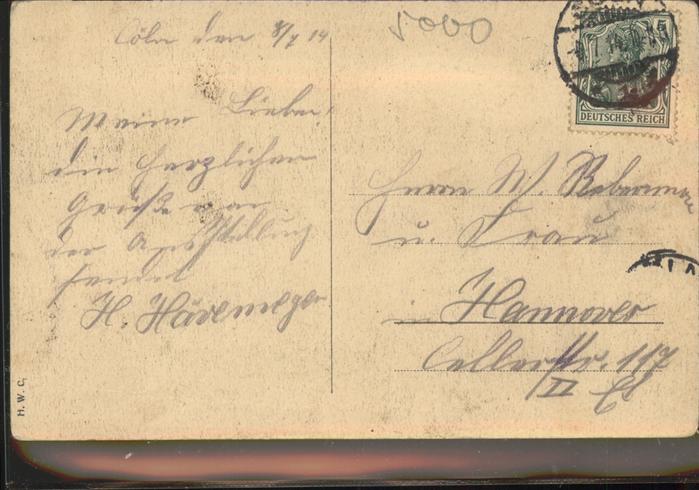 5000
Cöln den 8/7 14
5
DEUTSCHES REICH
Meine Lieben!
die herzlichen
Grüße von
der Ausstellung
sendet
H. Hävemeyer
Herrn W. Rebermann
u. Frau
in Hannover
Cellerstr. 117
II Et
H. W. C.